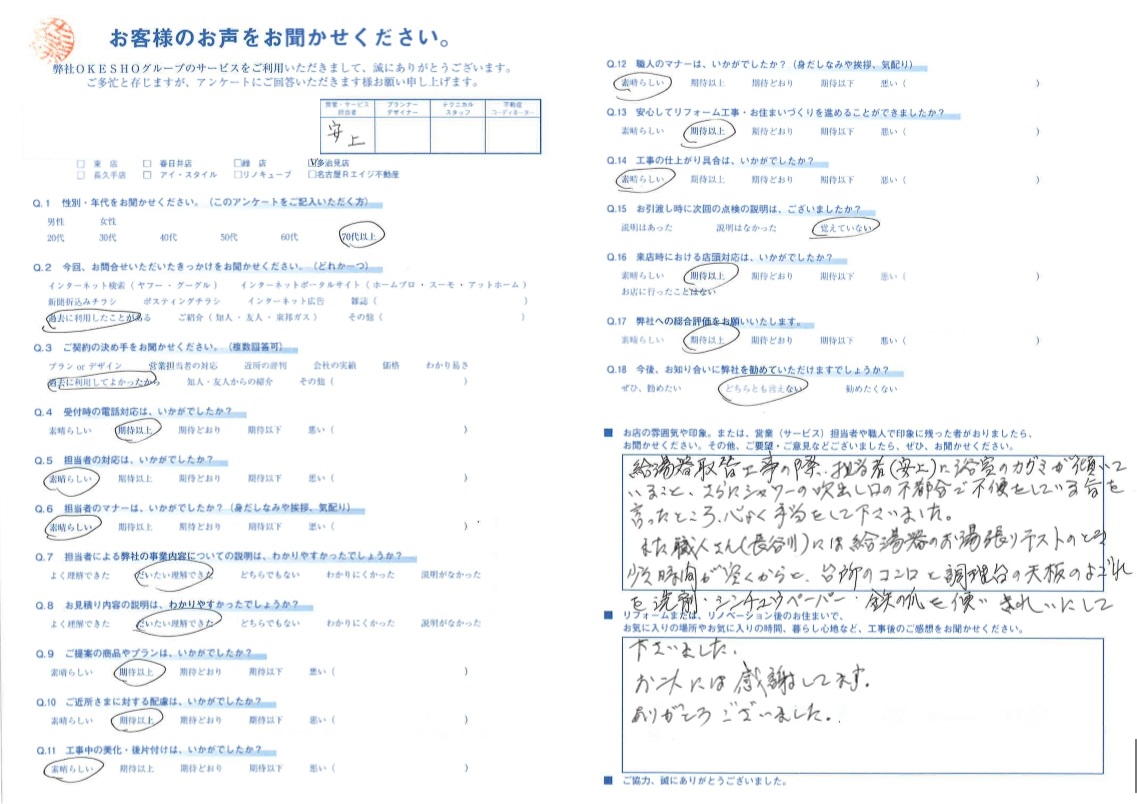 お客様のお声をお聞かせください。
弊社OKESHOグループのサービスをご利用いただきまして、誠にありがとうございます。
ご多忙と存じますが、アンケートにご回答いただきます様お願い申し上げます。
営業・サービス担当者 プランナーデザイナー テクニカルスタッフ 不動産コーディネーター
安上
□ 東 店 □ 春日井店 □緑 店 ☑多治見店
□ 長久手店 □ アイ・スタイル □リノキューブ □名古屋Rエイジ不動産
Q.1 性別・年代をお聞かせください。（このアンケートをご記入いただく方）
男性 女性
20代 30代 40代 50代 60代 70代以上
Q.2 今回、お問合せいただいたきっかけをお聞かせください。（どれか一つ）
インターネット検索（ ヤフー・グーグル ） インターネットポータルサイト（ ホームプロ・スーモ・アットホーム ）
新聞折込みチラシ ポスティングチラシ インターネット広告 雑誌（ ）
過去に利用したことがある ご紹介（ 知人・友人・東邦ガス ） その他（ ）
Q.3 ご契約の決め手をお聞かせください。（複数回答可）
プラン or デザイン 営業担当者の対応 近所の評判 会社の実績 価格 わかり易さ
過去に利用してよかったから 知人・友人からの紹介 その他（ ）
Q.4 受付時の電話対応は、いかがでしたか？
素晴らしい 期待以上 期待どおり 期待以下 悪い（ ）
Q.5 担当者の対応は、いかがでしたか？
素晴らしい 期待以上 期待どおり 期待以下 悪い（ ）
Q.6 担当者のマナーは、いかがでしたか？（身だしなみや挨拶、気配り）
素晴らしい 期待以上 期待どおり 期待以下 悪い（ ）
Q.7 担当者による弊社の事業内容についての説明は、わかりやすかったでしょうか？
よく理解できた だいたい理解できた どちらでもない わかりにくかった 説明がなかった
Q.8 お見積り内容の説明は、わかりやすかったでしょうか？
よく理解できた だいたい理解できた どちらでもない わかりにくかった 説明がなかった
Q.9 ご提案の商品やプランは、いかがでしたか？
素晴らしい 期待以上 期待どおり 期待以下 悪い（ ）
Q.10 ご近所さまに対する配慮は、いかがでしたか？
素晴らしい 期待以上 期待どおり 期待以下 悪い（ ）
Q.11 工事中の美化・後片付けは、いかがでしたか？
素晴らしい 期待以上 期待どおり 期待以下 悪い（ ）
Q.12 職人のマナーは、いかがでしたか？（身だしなみや挨拶、気配り）
素晴らしい 期待以上 期待どおり 期待以下 悪い（ ）
Q.13 安心してリフォーム工事・お住まいづくりを進めることができましたか？
素晴らしい 期待以上 期待どおり 期待以下 悪い（ ）
Q.14 工事の仕上がり具合は、いかがでしたか？
素晴らしい 期待以上 期待どおり 期待以下 悪い（ ）
Q.15 お引渡し時に次回の点検の説明は、ございましたか？
説明はあった 説明はなかった 覚えていない
Q.16 来店時における店頭対応は、いかがでしたか？
素晴らしい 期待以上 期待どおり 期待以下 悪い（ ）
お店に行ったことはない
Q.17 弊社への総合評価をお願いいたします。
素晴らしい 期待以上 期待どおり 期待以下 悪い（ ）
Q.18 今後、お知り合いに弊社を勧めていただけますでしょうか？
ぜひ、勧めたい どちらとも言えない 勧めたくない
■ お店の雰囲気や印象。または、営業（サービス）担当者や職人で印象に残った者がおりましたら、
お聞かせください。その他、ご要望・ご意見などございましたら、ぜひ、お聞かせください。
給湯器取替工事の際、担当者(安上)に浴室のカガミが傾いて
いること、さらにシャワーの吹出し口の不都合で不便をしている旨を
言ったところ、心よく手当をして下さいました。
また職人さん(長谷川)には給湯器のお湯張りテストのとき
少々時間が空くからと、台所のコンロと調理台の天板のよごれ
を洗剤・シンチュウペーパー・鉄の爪を使い きれいにして
■ リフォームまたは、リノベーション後のお住まいで、
お気に入りの場所やお気に入りの時間、暮らし心地など、工事後のご感想をお聞かせください。
下さいました。
お二人には感謝してます。
ありがとうございました。
■ ご協力、誠にありがとうございました。